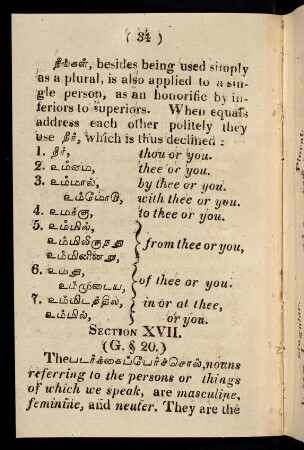 ( 34 )
நீங்கள், besides being used simply
as a plural, is also applied to a sin-
gle person, as an honorific by in-
feriors to superiors. When equals
address each other politely they
use நீர், which is thus declined :
1. நீர், thou or you.
2. உம்மை, thee or you.
3. உம்மால், by thee or you.
உம்மோடு, with thee or you.
4. உமக்கு, to thee or you.
5. உம்மில்,
உம்மிலிருந்து
உம்மினின்று,
from thee or you,
6. உமது
உம்முடைய,
of thee or you.
7. உம்மிடத்தில்,
உம்மில்,
in or at thee,
or you.
SECTION XVII.
(G. § 20.)
The படர்க்கைப்பேர்ச்சொல், nouns
referring to the persons or things
of which we speak, are masculine,
feminine, and neuter. They are the